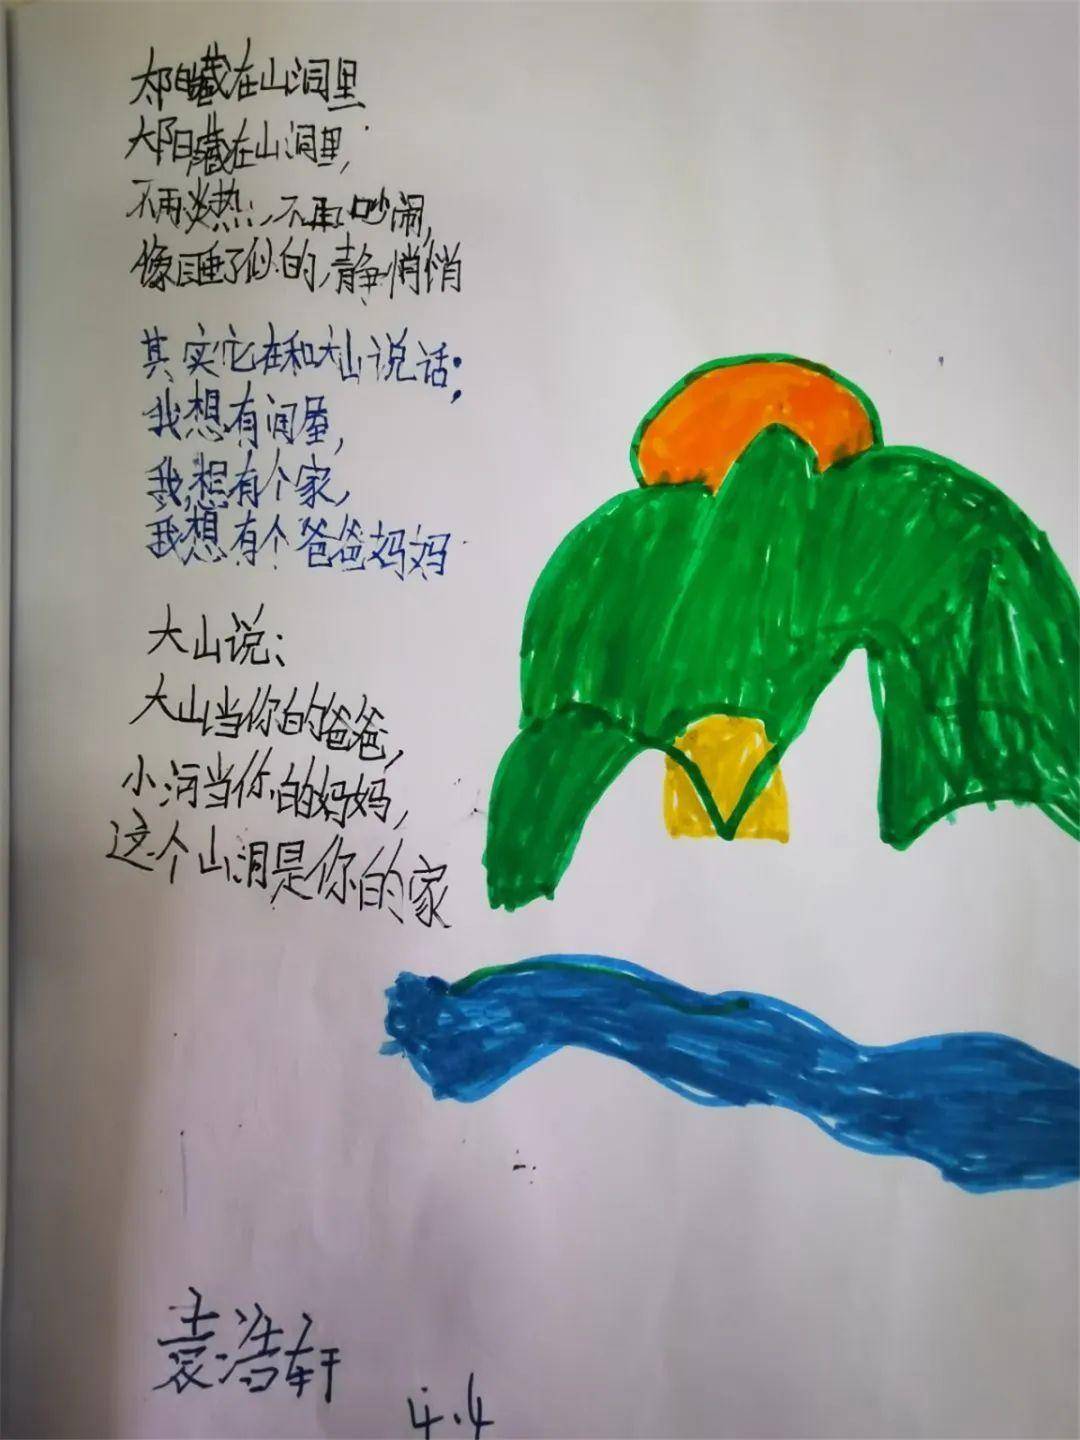 太阳藏在山洞里
太阳藏在山洞里,
不再炎热,不再吵闹,
像睡了似的,静悄悄
其实它在和大山说话:
我想有间屋,
我想有个家,
我想有个爸爸妈妈
大山说:
大山当你的爸爸,
小河当你的妈妈,
这个山洞是你的家
袁浩轩
4.4